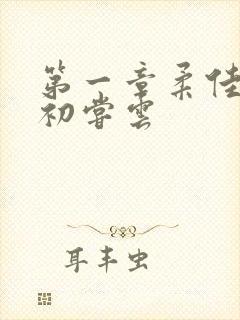 第一章柔佳
初尝雲
耳丰虫